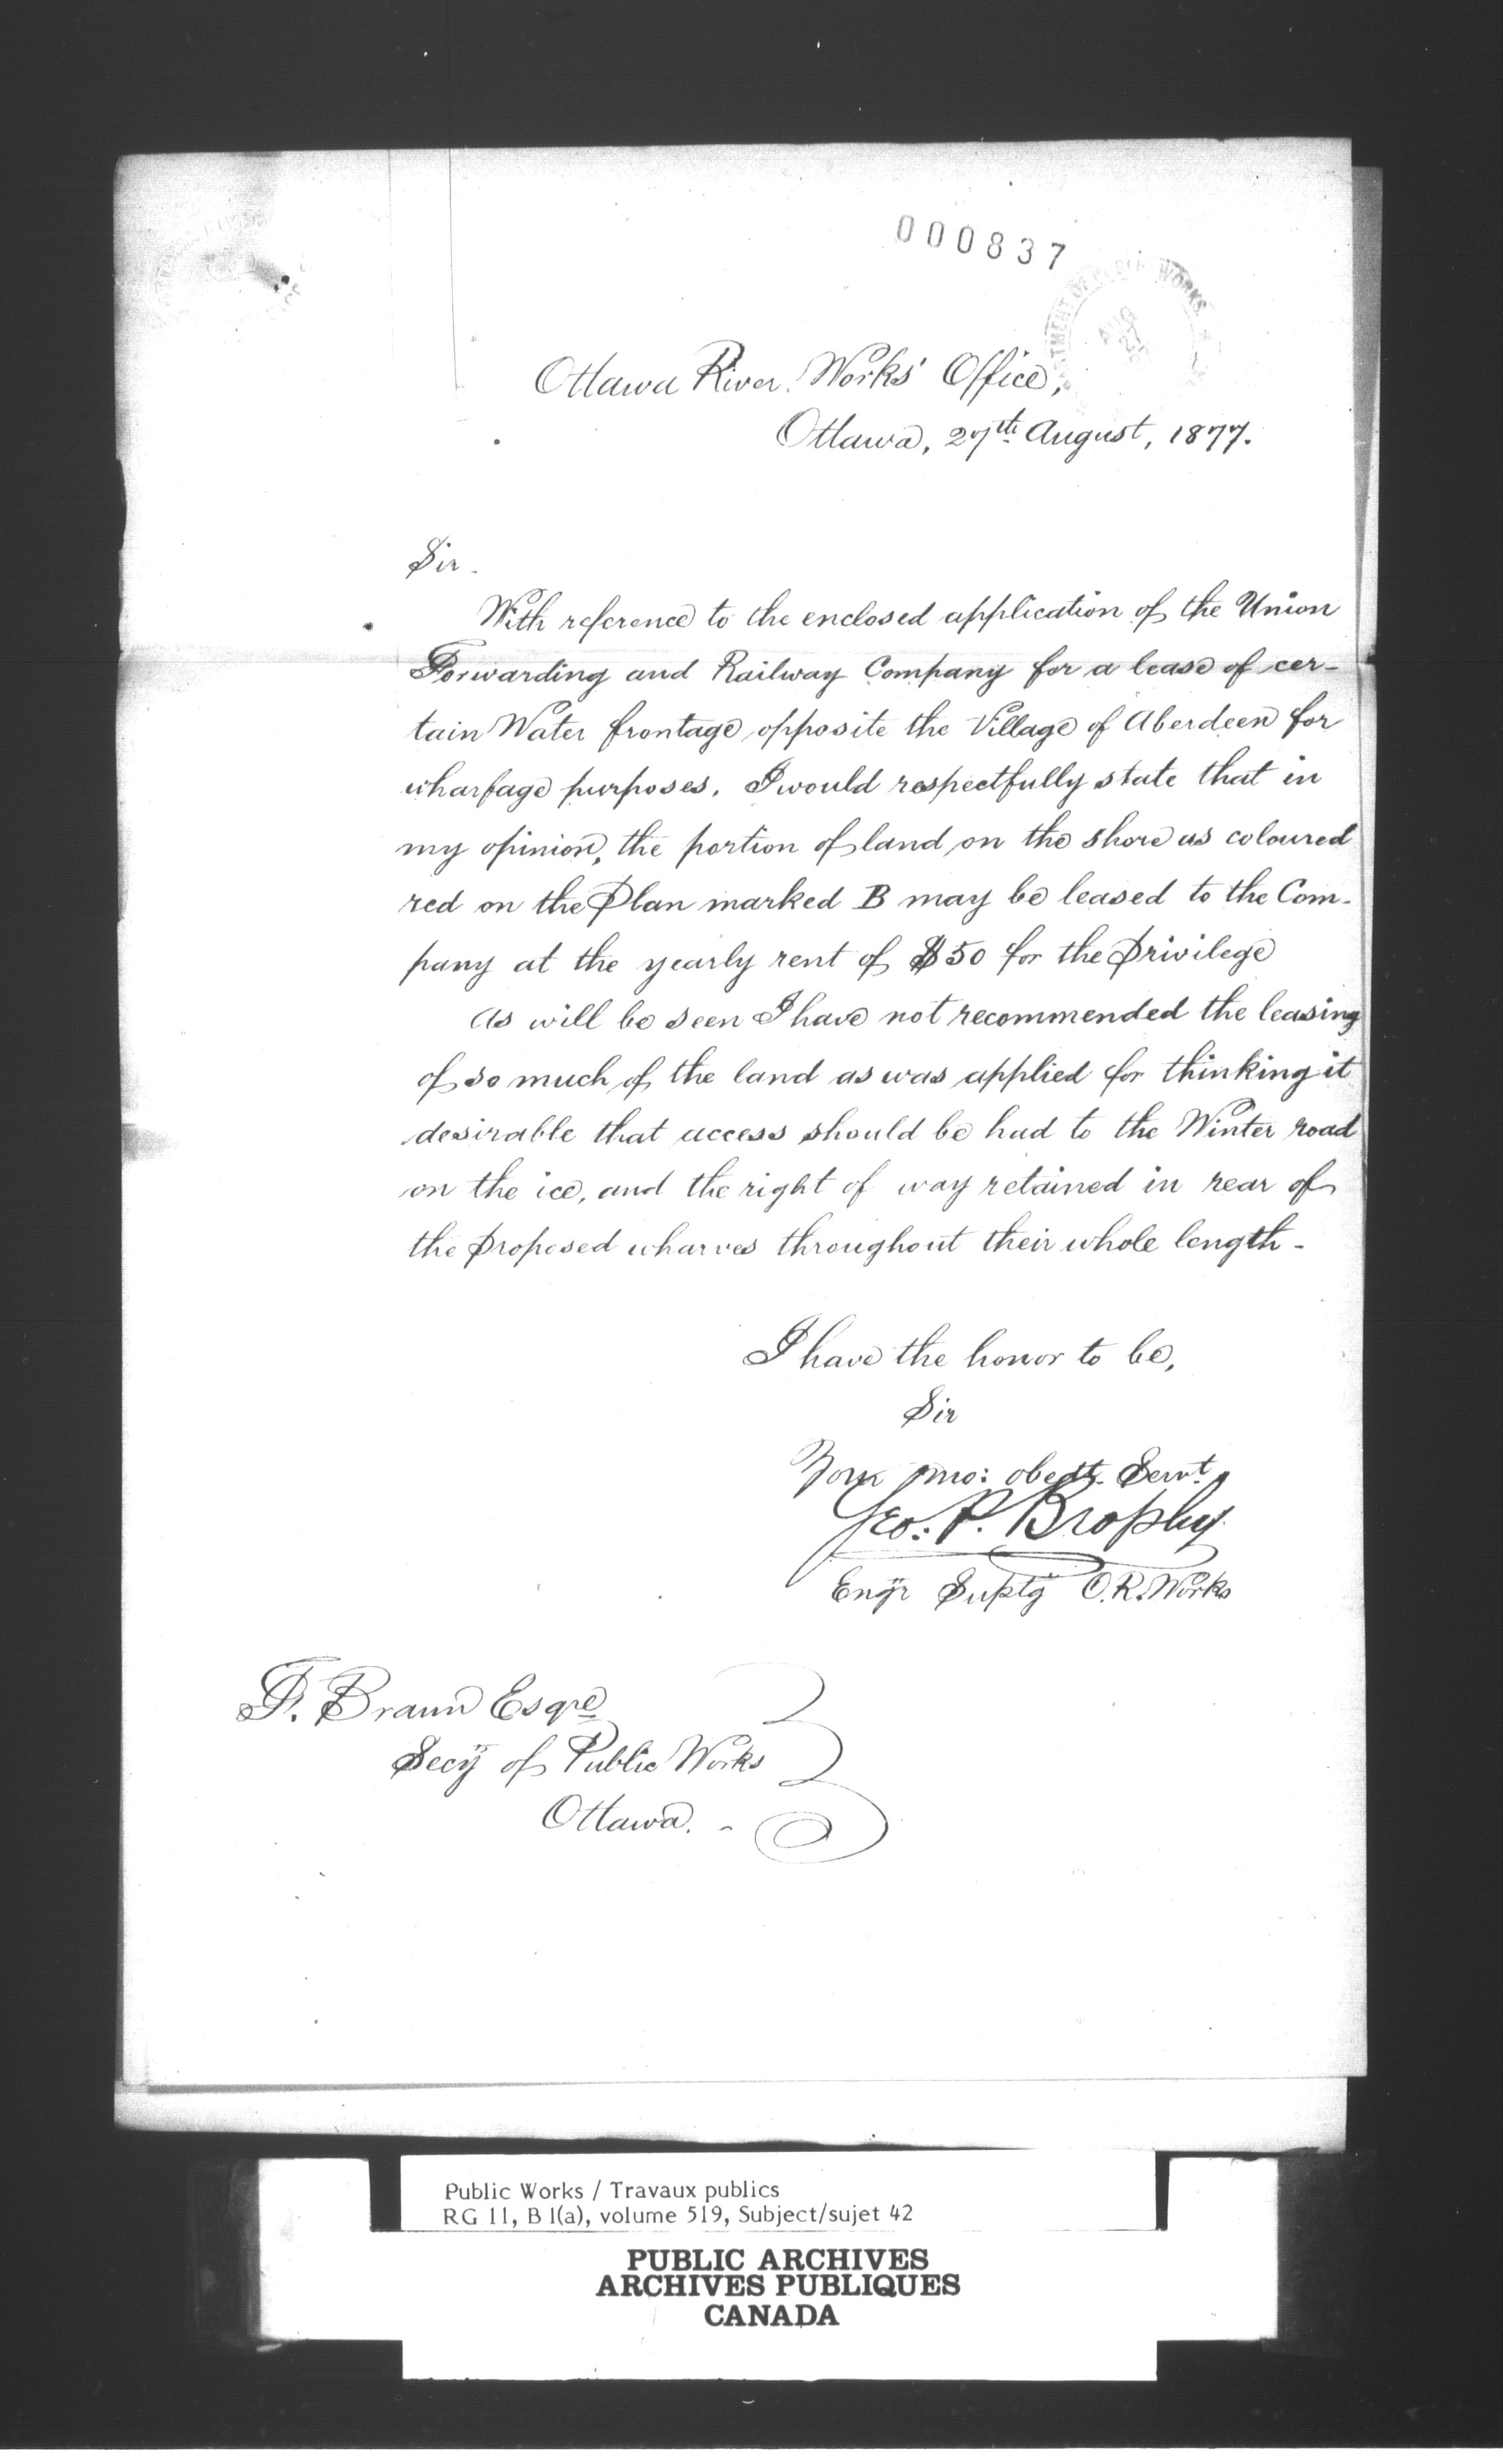 000837
WORKS
AUG
27
Ottawa River Works' Office,
Ottawa, 27th August, 1877.
Sir.
With reference to the enclosed application of the Union
Forwarding and Railway Company for a lease of cer-
tain Water frontage opposite the Village of Aberdeen for
wharfage purposes. I would respectfully state that in
my opinion, the portion of land on the shore as coloured
red on the Plan marked B may be leased to the Com-
pany at the yearly rent of $50 for the Privilege
As will be seen I have not recommended the leasing
of so much of the land as was applied for thinking it
desirable that access should be had to the Winter road
on the ice, and the right of way retained in rear of
the proposed wharves throughout their whole length -
I have the honor to be,
Sir
Your mo: obedt. Servt.
Geo: P. Brophy
Engr Suptg O.R. Works
F. Braun Esqre
Secy of Public Works
Ottawa. -
Public Works / Travaux publics
RG 11, B 1(a), volume 519, Subject/sujet 42
PUBLIC ARCHIVES
ARCHIVES PUBLIQUES
CANADA